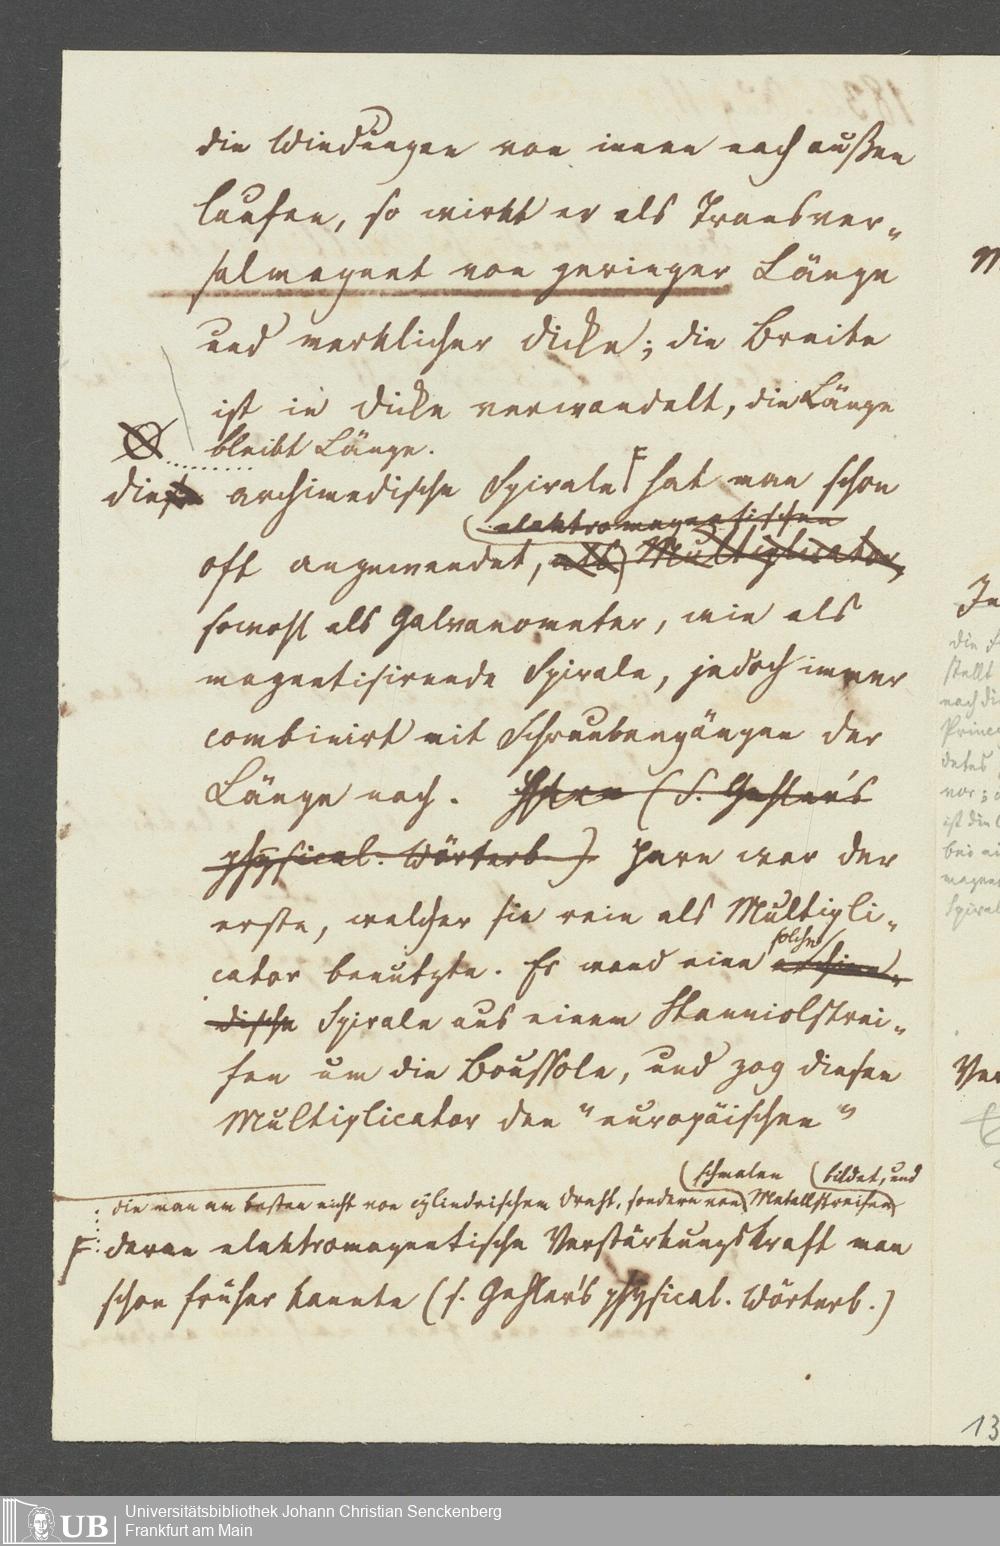 die Windungen von innen nach außen
laufen, so wirkt er als Transver-
salmagnet von geringer Länge
und merklicher Dicke; die Breite
ist in Dicke verwandelt, die Länge
bleibt Länge.
diese archimedische Spirale F hat man schon
elektromagnetischen
oft angewendet, als Multiplicator,
sowohl als Galvanometer, wie als
magnetisirende Spirale, jedoch immer
combinirt mit Schraubengängen der
Länge nach. (S. Gehler's
physical. Wörterb.) war der
erste, welcher sie rein als Multipli-
solche
cator benutzte. Er wand eine archime-
dische Spirale aus einem Stanniolstrei-
fen um die Boussole, und zog diesen
Multiplicator den "europäischen"
schmalen bildet, und
die man am besten nicht von cylindrischem Draht, sondern von Metallstreifen
F deren elektromagnetische Verstärkungskraft man
schon früher kannte (s. Gehler's physical. Wörterb.)
die
stellt
nach di
Princ
ist die
bei ei
magne
Spiral
Ver
13
Universitätsbibliothek Johann Christian Senckenberg
Frankfurt am Main
UB